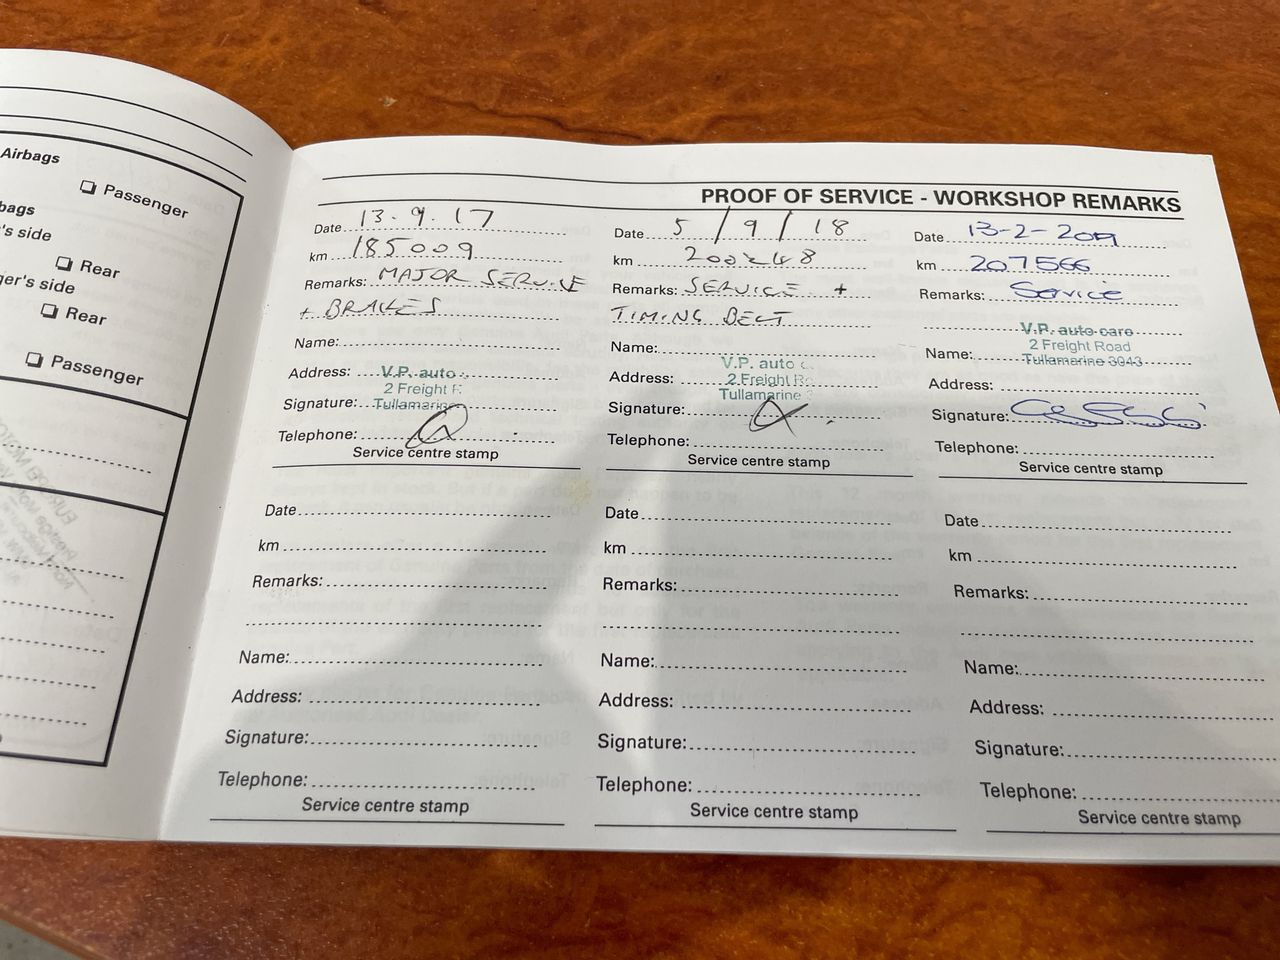 Airbags
❏ Passenger
bags
's side
❏ Rear
ger's side
❏ Rear
❏ Passenger
PROOF OF SERVICE - WORKSHOP REMARKS
Date 13.9.17
km 185009
Remarks: MAJOR SERVICE
+ BRAKES
Name:
Address: V.P. auto
2 Freight
Signature: Tullamarine
Telephone:
Service centre stamp
Date 5/9/18
km 200248
Remarks: SERVICE +
TIMING BELT
Name:
V.P. auto c
Address: 2 Freight Ro
Tullamarine 3
Signature:
Telephone:
Service centre stamp
Date 13-2-2019
km 207566
Remarks: Service
V.P. auto care
Name: 2 Freight Road
Tullamarine 3043
Address:
Signature:
Telephone:
Service centre stamp
Date
km
Remarks:
Name:
Address:
Signature:
Telephone:
Service centre stamp
Date
km
Remarks:
Name:
Address:
Signature:
Telephone:
Service centre stamp
Date
km
Remarks:
Name:
Address:
Signature:
Telephone:
Service centre stamp